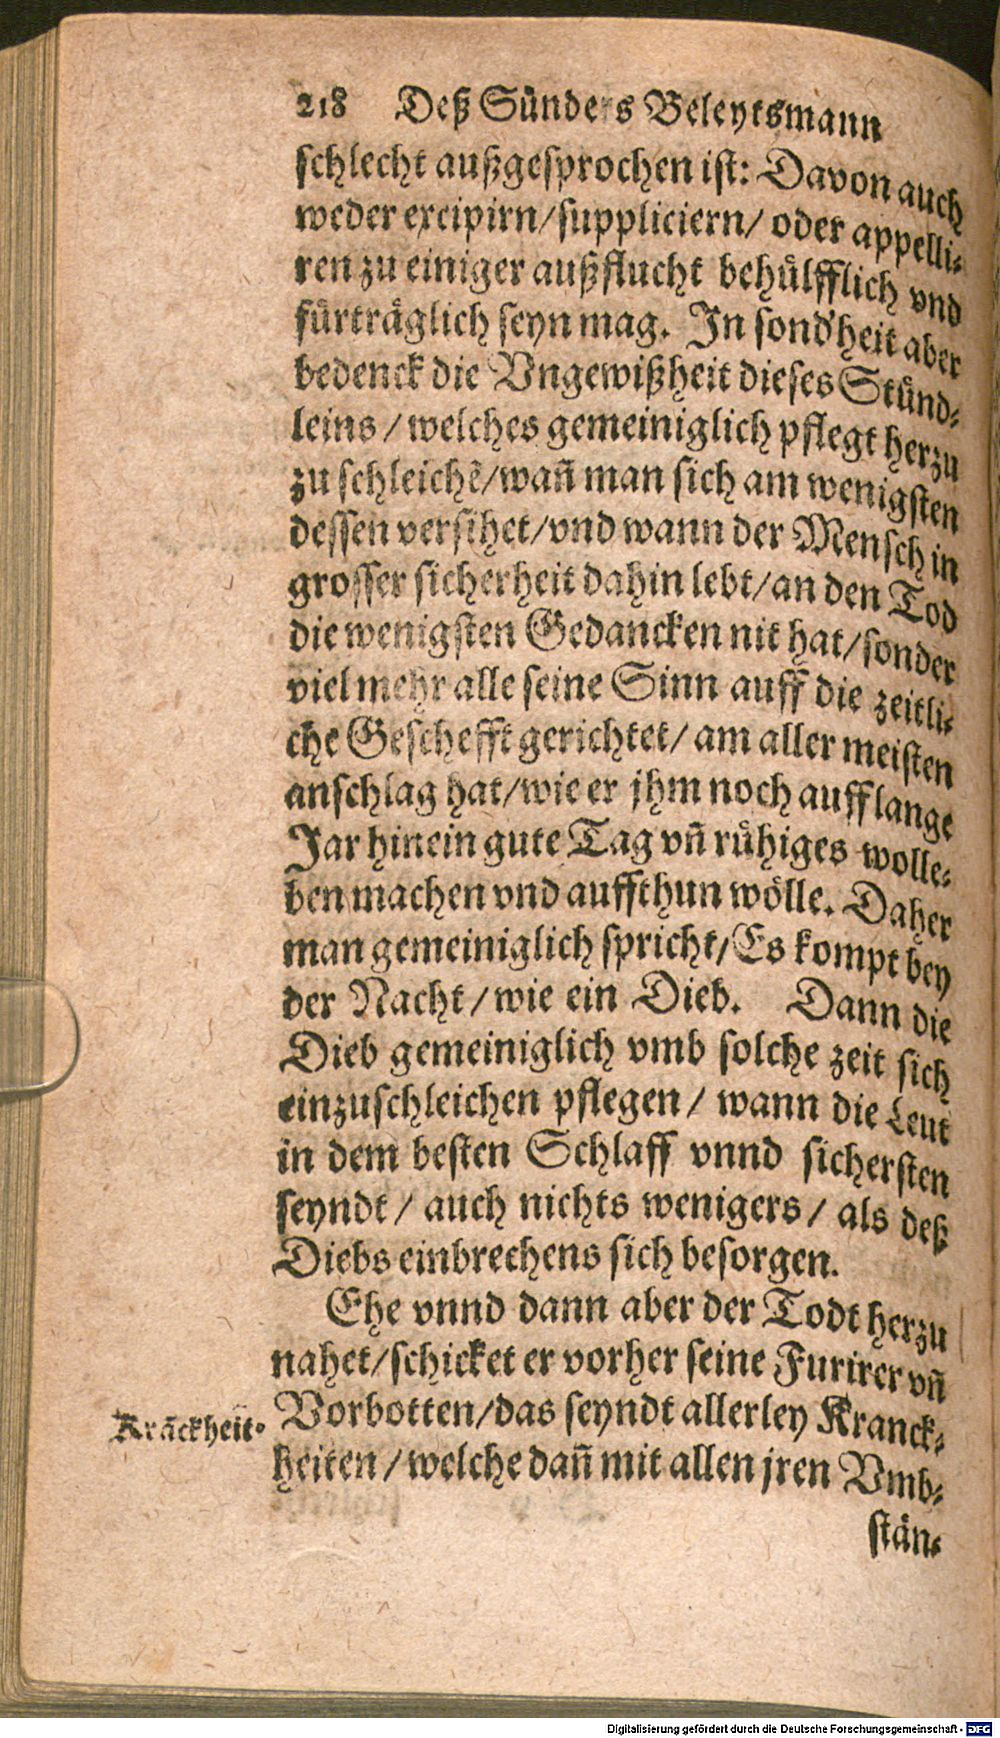 218 Deß Sünders Beleytsmann
schlecht außgesprochen ist: Davon auch
weder excipirn/suppliciern/ oder appelli-
ren zu einiger außflucht behülfflich vnd
fürträglich seyn mag. In sond'heit aber
bedenck die Vngewißheit dieses Stünd-
leins / welches gemeiniglich pflegt herzu
zu schleichẽ/wañ man sich am wenigsten
dessen versihet/vnd wann der Mensch in
grosser sicherheit dahin lebt/an den Tod
die wenigsten Gedancken nit hat/sonder
viel mehr alle seine Sinn auff die zeitli-
che Geschefft gerichtet/ am aller meisten
anschlag hat/wie er jhm noch auff lange
Jar hinein gute Tag vñ rühiges wolle-
ben machen vnd auffthun wölle. Daher
man gemeiniglich spricht/Es kompt bey
der Nacht/wie ein Dieb. Dann die
Dieb gemeiniglich vmb solche zeit sich
einzuschleichen pflegen/ wann die Leut
in dem besten Schlaff vnnd sichersten
seyndt/ auch nichts wenigers/ als deß
Diebs einbrechens sich besorgen.
Ehe vnnd dann aber der Todt herzu
nahet/schicket er vorher seine Furirer vñ
Vorbotten/das seyndt allerley Kranck-
Krãckheit.
heiten/welche dañ mit allen jren Vmb-
stän-
Digitalisierung gefördert durch die Deutsche Forschungsgemeinschaft - DFG